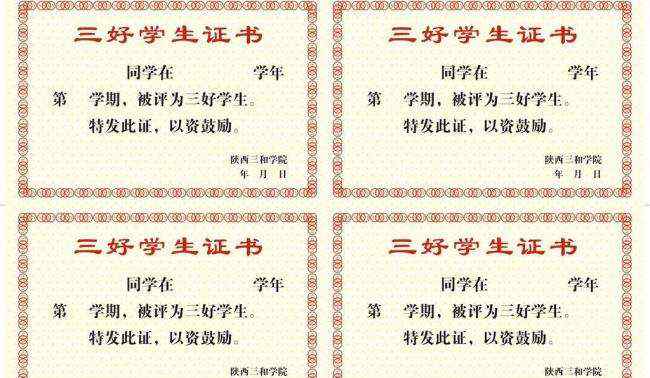 三好学生证书
同学在 学年
第 学期，被评为三好学生。
特发此证，以资鼓励。
陕西三和学院
年 月 日
三好学生证书
同学在 学年
第 学期，被评为三好学生。
特发此证，以资鼓励。
陕西三和学院
年 月 日
三好学生证书
同学在 学年
第 学期，被评为三好学生。
特发此证，以资鼓励。
陕西三和学院
三好学生证书
同学在 学年
第 学期，被评为三好学生。
特发此证，以资鼓励。
陕西三和学院